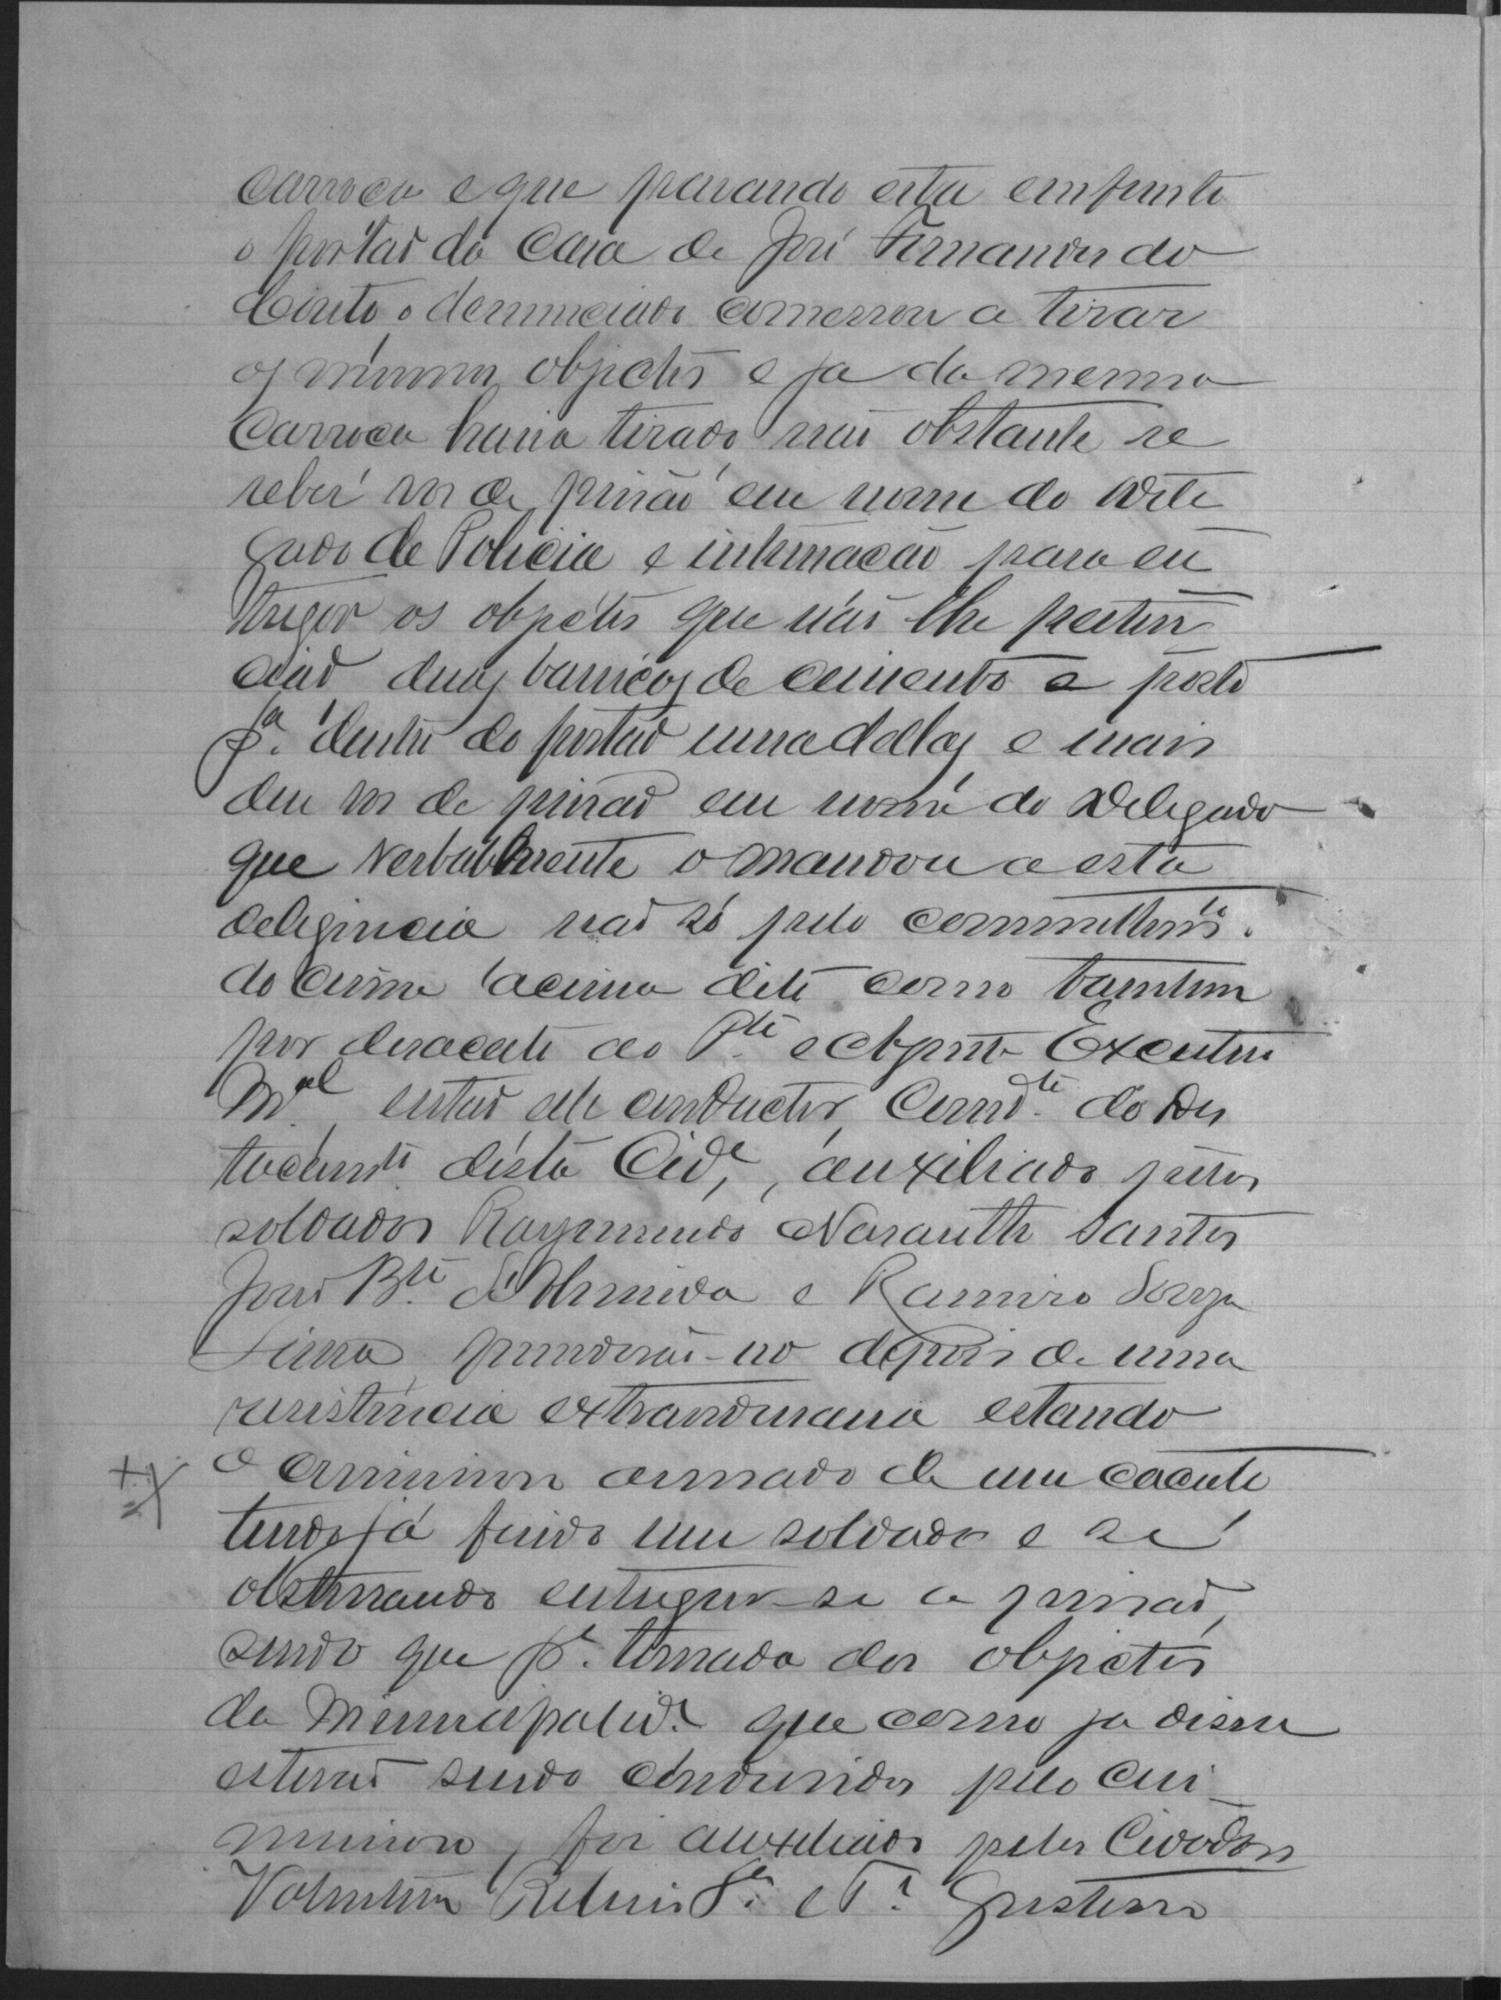 carroça e que parando esta em frente
o portão da Casa de José Fernandes do
Couto o denunciado comessou a tirar
os mesmos objectos e ja da mesma
Carroça havia tirado não obstante re
seber vos de prisão em nome do Dele
gado de Policia e intimação para en
tregar os objectos que não lhe perten
cião duas barricas de cimento e posto
pª. dentro do portão uma dellas e mais
deu vos de prisão em nome do Delegado
que verbalmente o mandou a esta
deligencia não só pelo committimtº.
do crime acima dito como tambem
por desacato ao Pte. e Agente Executivo
Mal. então elle conductor Comdte. do Des
tacamtº. désta Cide, auxiliado pelos
soldados Raymundo Nasareth Santos
José Bte. d'Almeida e Ramiro Souza
Lima, prenderão-no depois de uma
resistência extraordinaria estando
o criminoso armado de um cacete
tendo já ferido um soldado e se
obstinando entregar-se a prisão,
sendo que pª. tomada dos objectos
da Municipalide. que como ja disse
estavão sendo condusidos pelo cri-
minoso, foi auxiliado pelos Cidadãos
Valentim e Fr.